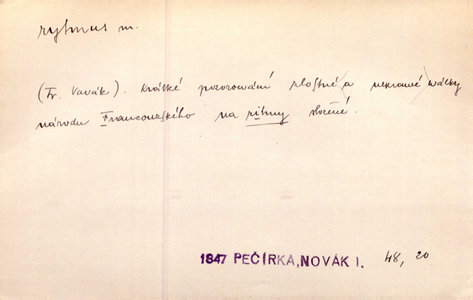 rytmus m.
(Fr. Vavák). Krátké pozorování zlostné a nekrawé wálky
národu Francouzského na ritmy složené.
1847 PEČÍRKA, NOVÁK I. 48, 20